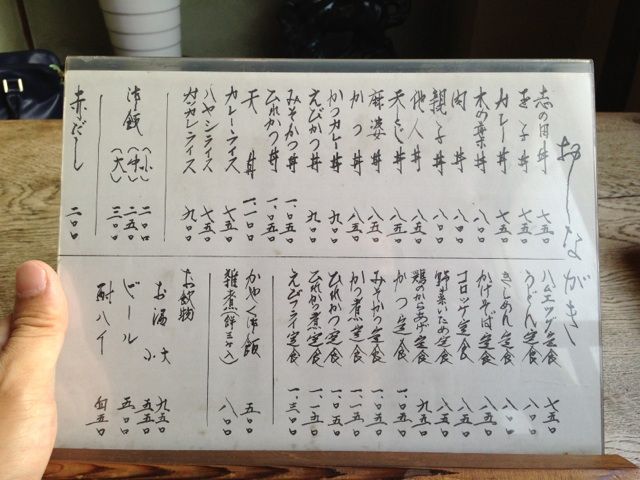 おしながき
志の田丼 七五〇
玉子丼 七五〇
カレー丼 七五〇
木の葉丼 八〇〇
肉丼 八〇〇
親子丼 八〇〇
他人丼 八五〇
天とじ丼 八五〇
麻婆丼 八五〇
かつ丼 八五〇
かつカレー丼 九〇〇
えびかつ丼 九〇〇
みそかつ丼 一、〇五〇
ひれかつ丼 一、〇五〇
天丼 一、一〇〇
カレーライス 七五〇
ハヤシライス 七五〇
カツカレーライス 九〇〇
御飯 (小) 二〇〇
(中) 二五〇
(大) 三〇〇
赤だし 二〇〇
ハムエッグ定食 七五〇
うどん定食 八〇〇
きしめん定食 八〇〇
かけそば定食 八五〇
コロッケ定食 八五〇
野菜いため定食 八五〇
鶏のからあげ定食 九五〇
かつ定食 一、〇五〇
みそかつ定食 一、〇五〇
かつ煮定食 一、〇五〇
ひれかつ定食 一、〇五〇
ひれかつ煮定食 一、一五〇
えびフライ定食 一、三〇〇
かやく御飯 五〇〇
雑煮(餅三ヶ入) 八〇〇
お飲物
お酒 大 九五〇
小 五五〇
ビール 五〇〇
酎ハイ 四五〇